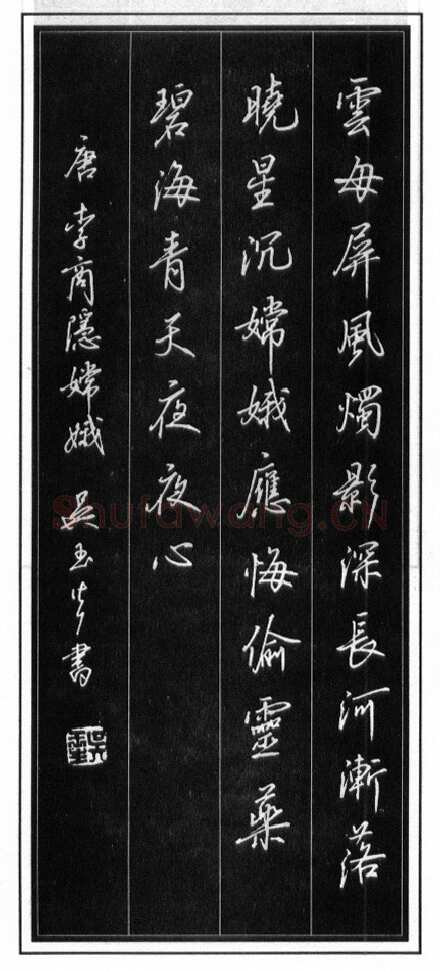 雲母屏風燭影深長河漸落
曉星沉嫦娥應悔偷靈藥
碧海青天夜夜心
唐李商隱嫦娥 吴玉生書
Shufawang.CN